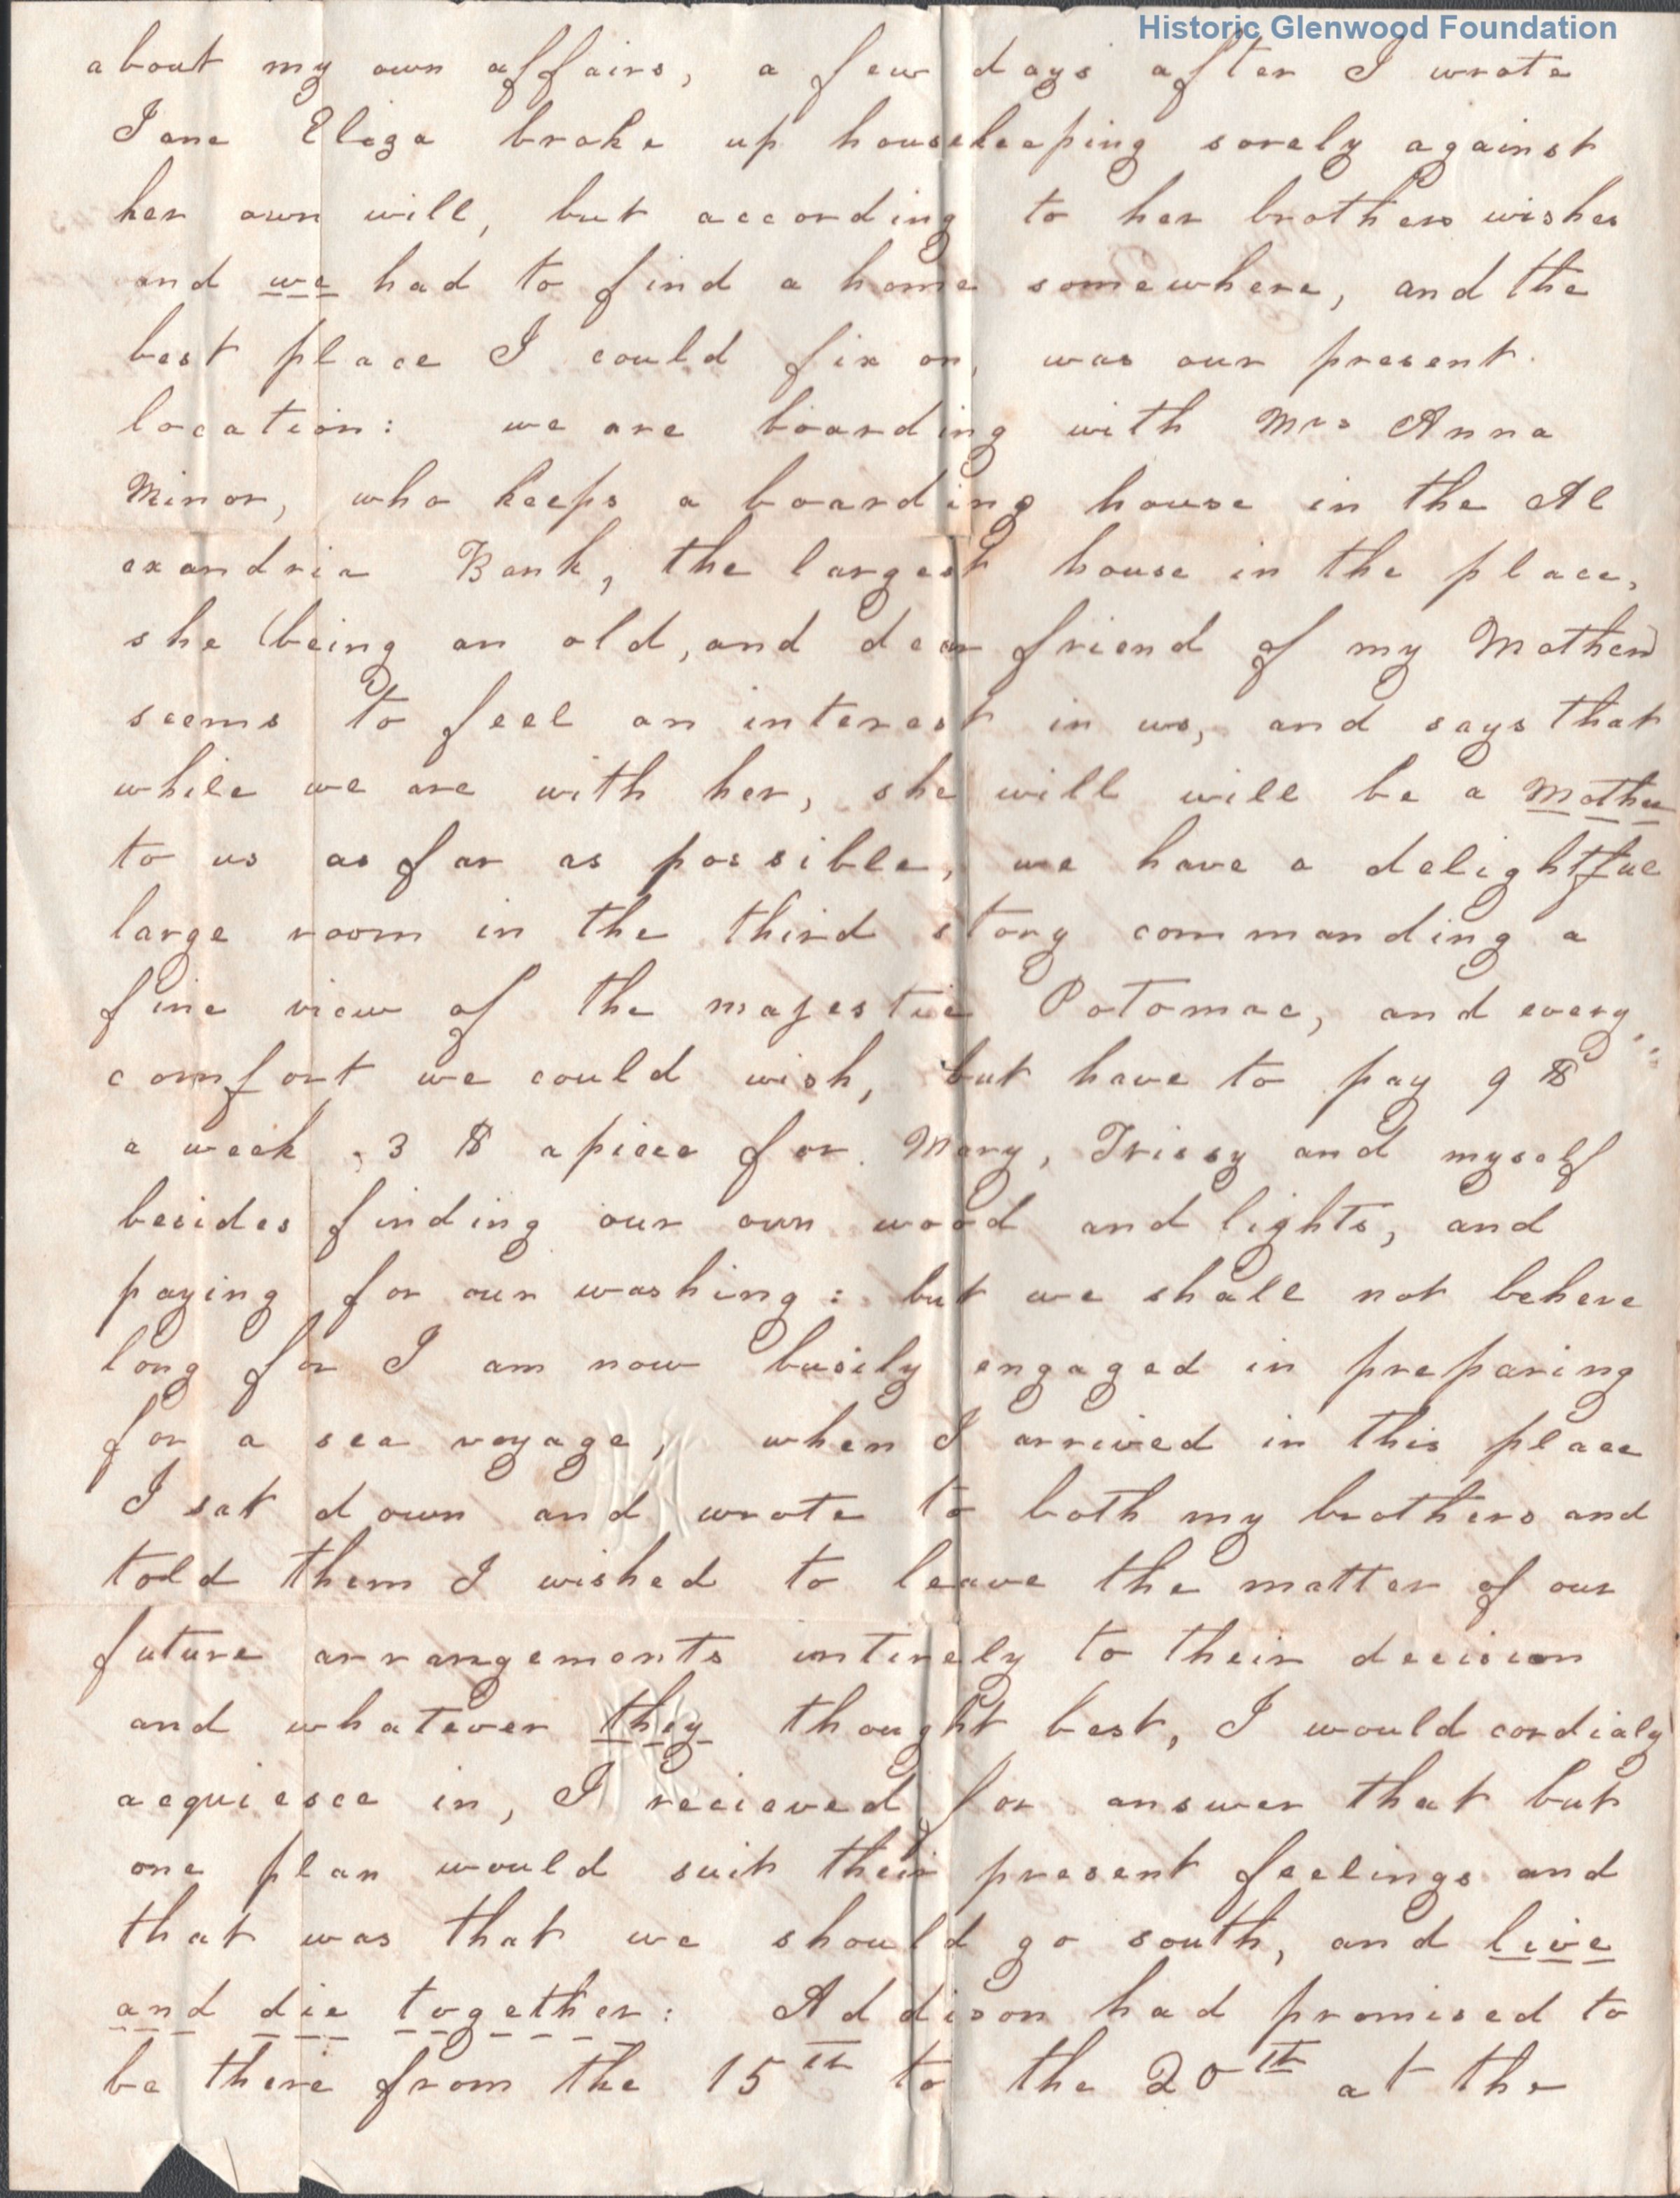 Historic Glenwood Foundation
about my own affairs, a few days after I wrote
Jane Eliza broke up housekeeping sorely against
her own will, but according to her brothers wishes
and we had to find a home somewhere, and the
best place I could fix on, was our present
location: we are boarding with Mrs Anna
Minor, who keeps a boarding house in the Al
exandria Bank, the largest house in the place,
she (being an old, and dear friend of my Mother)
seems to feel an interest in us, and says that
while we are with her, she will will be a Mother
to us as far as possible, we have a delightful
large room in the third story commanding a
fine view of the majestic Potomac, and every
comfort we could wish, but have to pay 9 $
a week, 3 $ apiece for Mary, Trissy and myself
besides finding our own wood and lights, and
paying for our washing: but we shall not behere
long for I am now busily engaged in preparing
for a sea voyage, when I arrived in this place
I sat down and wrote to both my brothers and
told them I wished to leave the matter of our
future arrangements intirely to their decision
and whatever they thought best, I would cordialy
acquiesce in, I recieved for answer that but
one plan would suit their present feelings and
that was that we should go south, and live
and die together: Addison had promised to
be there from the 15th to the 20th at the